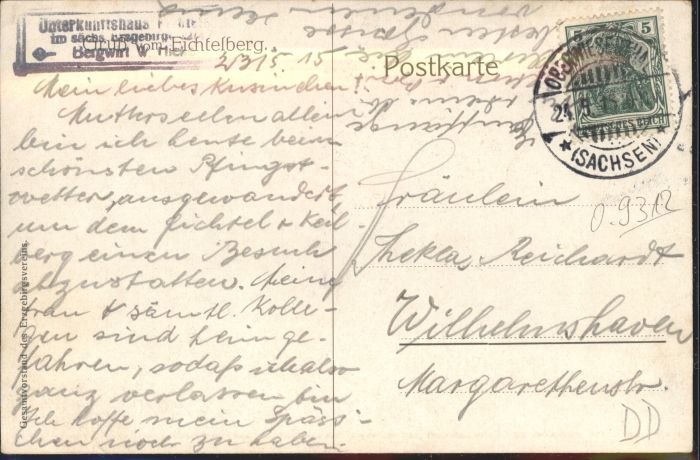 Unterkunftshaus
im sächs. Erzgebirge
Bergwirt W
Gruß vom Fichtelberg.
Postkarte
23/5 15
Mein liebes Kusinchen!
Mutterseelen allein
bin ich heute beim
schönsten Pfingst
wetter, ausgewandert,
um dem Fichtel & Keil-
berg einen Besuch
abzustatten. Meine
Frau & sämtl. Kolle-
gen sind heim ge-
fahren, sodaß ich also
ganz verlassen bin
Ich hoffe mein Späss-
chen noch zu haben.
Fräulein
Thekla Reichardt
Wilhelmshaven
Margarethenstr.
5
(SACHSEN)
0.9312
DD
Gesamtvorstand des Erzgebirgsvereins.